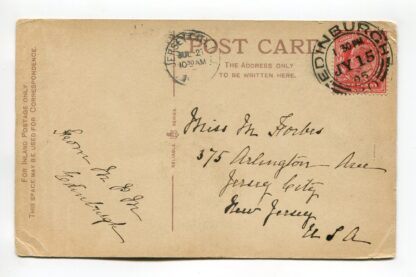 POST CARD
THE ADDRESS ONLY
TO BE WRITTEN HERE.
FOR INLAND POSTAGE ONLY
THIS SPACE MAY BE USED FOR CORRESPONDENCE.
RELIABLE SERIES
JERSEY CITY
JUL 23
1030AM
EDINBURGH
30 PM
JY 15
05
From M & M
Edinburgh
Miss M Forbes
375 Arlington Ave
Jersey City
New Jersey
U S A